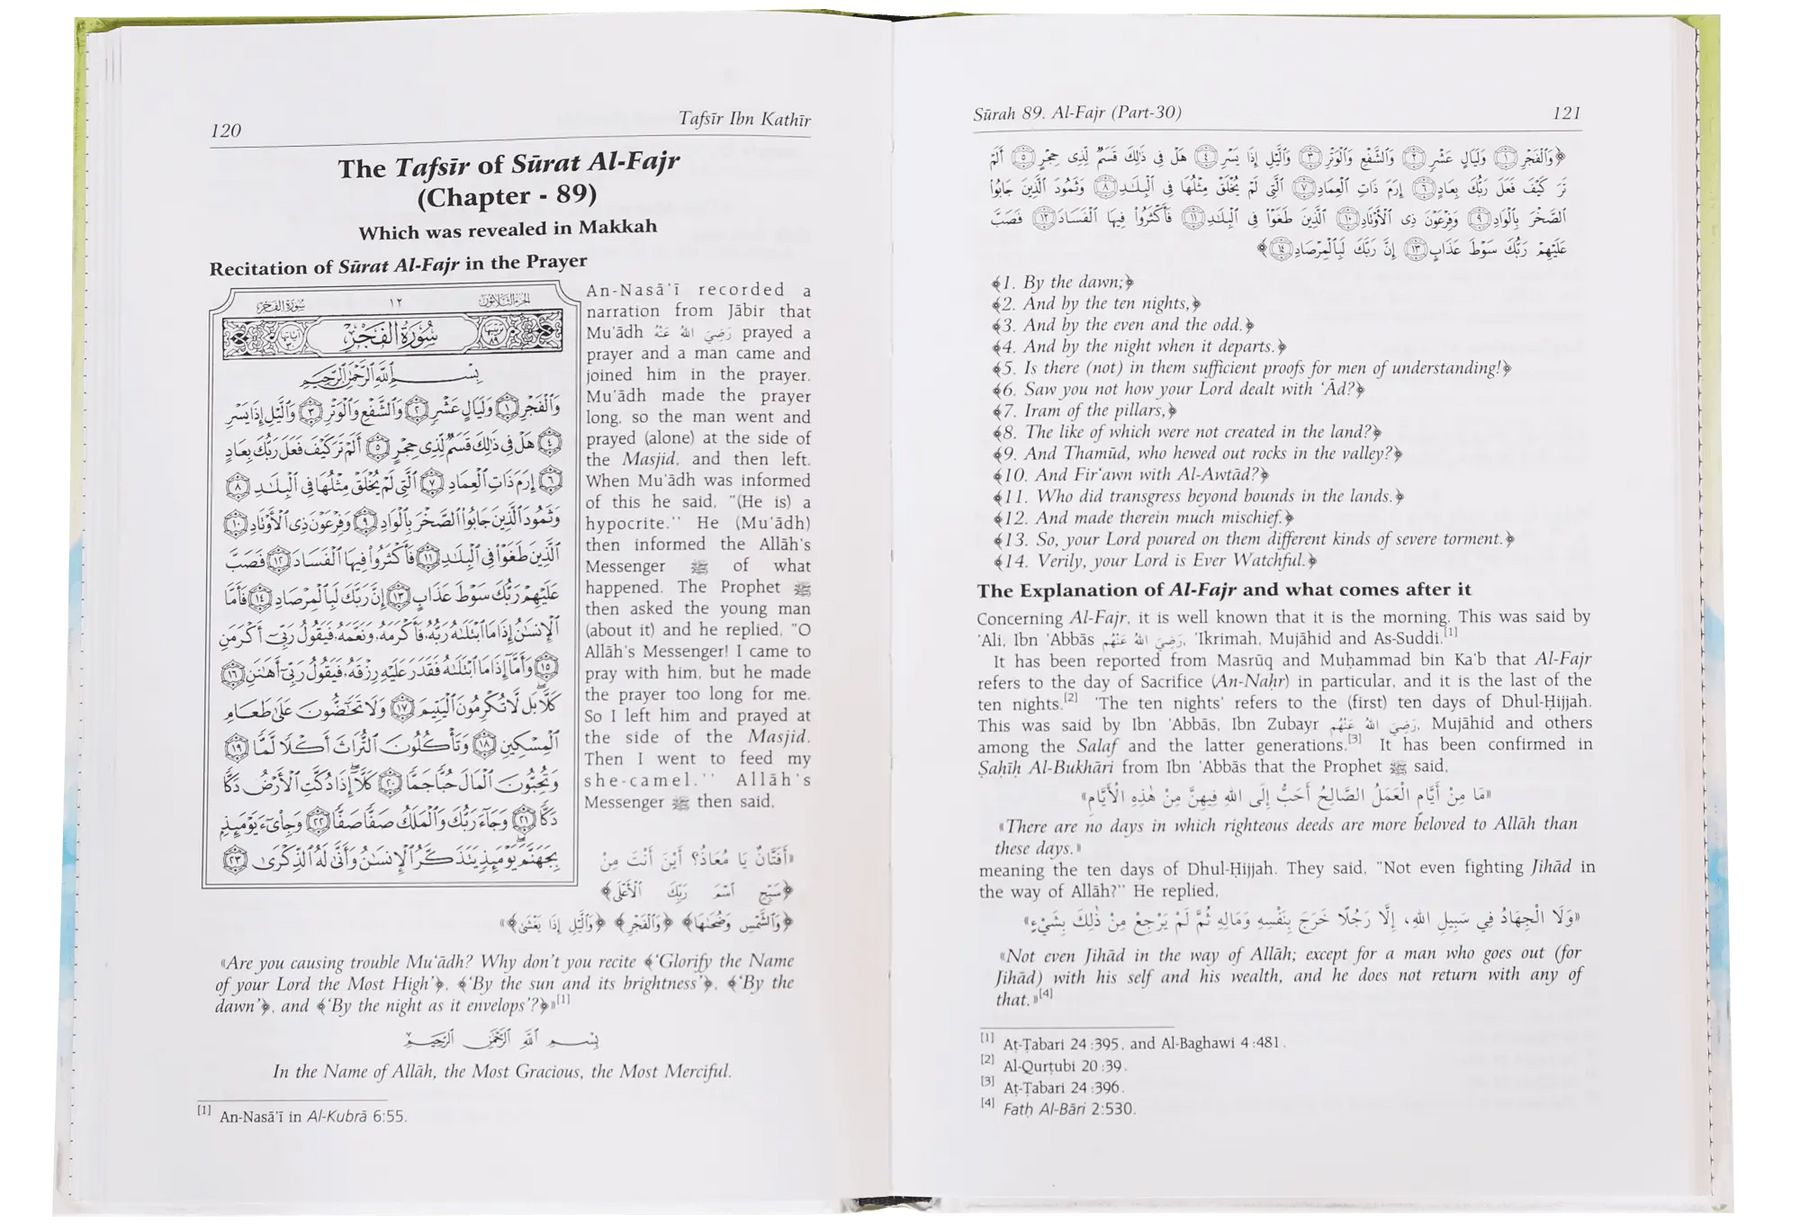 120
Tafsīr Ibn Kathīr
The Tafsīr of Sūrat Al-Fajr
(Chapter - 89)
Which was revealed in Makkah
Recitation of Sūrat Al-Fajr in the Prayer
سُورَةُ الفَجْرِ ١٢ الجُزْءُ الثَّلَاثُونَ
سُورَةُ الْفَجْرِ
بِسْمِ اللَّهِ الرَّحْمَٰنِ الرَّحِيمِ
وَالْفَجْرِ ١ وَلَيَالٍ عَشْرٍ ٢ وَالشَّفْعِ وَالْوَتْرِ ٣ وَاللَّيْلِ إِذَا يَسْرِ
٤ هَلْ فِي ذَٰلِكَ قَسَمٌ لِذِي حِجْرٍ ٥ أَلَمْ تَرَ كَيْفَ فَعَلَ رَبُّكَ بِعَادٍ
٦ إِرَمَ ذَاتِ الْعِمَادِ ٧ الَّتِي لَمْ يُخْلَقْ مِثْلُهَا فِي الْبِلَادِ ٨
وَثَمُودَ الَّذِينَ جَابُوا الصَّخْرَ بِالْوَادِ ٩ وَفِرْعَوْنَ ذِي الْأَوْتَادِ ١٠
الَّذِينَ طَغَوْا فِي الْبِلَادِ ١١ فَأَكْثَرُوا فِيهَا الْفَسَادَ ١٢ فَصَبَّ
عَلَيْهِمْ رَبُّكَ سَوْطَ عَذَابٍ ١٣ إِنَّ رَبَّكَ لَبِالْمِرْصَادِ ١٤ فَأَمَّا
الْإِنسَانُ إِذَا مَا ابْتَلَاهُ رَبُّهُ فَأَكْرَمَهُ وَنَعَّمَهُ فَيَقُولُ رَبِّي أَكْرَمَنِ
١٥ وَأَمَّا إِذَا مَا ابْتَلَاهُ فَقَدَرَ عَلَيْهِ رِزْقَهُ فَيَقُولُ رَبِّي أَهَانَنِ ١٦
كَلَّا بَل لَّا تُكْرِمُونَ الْيَتِيمَ ١٧ وَلَا تَحَاضُّونَ عَلَىٰ طَعَامِ
الْمِسْكِينِ ١٨ وَتَأْكُلُونَ التُّرَاثَ أَكْلًا لَّمًّا ١٩
وَتُحِبُّونَ الْمَالَ حُبًّا جَمًّا ٢٠ كَلَّا إِذَا دُكَّتِ الْأَرْضُ دَكًّا
دَكًّا ٢١ وَجَاءَ رَبُّكَ وَالْمَلَكُ صَفًّا صَفًّا ٢٢ وَجِايءَ يَوْمَئِذٍ
بِجَهَنَّمَ يَوْمَئِذٍ يَتَذَكَّرُ الْإِنسَانُ وَأَنَّىٰ لَهُ الذِّكْرَىٰ ٢٣
An-Nasā'ī recorded a
narration from Jābir that
Mu'ādh رَضِيَ اللهُ عَنْهُ prayed a
prayer and a man came and
joined him in the prayer.
Mu'ādh made the prayer
long, so the man went and
prayed (alone) at the side of
the Masjid, and then left.
When Mu'ādh was informed
of this he said, "(He is) a
hypocrite." He (Mu'ādh)
then informed the Allāh's
Messenger ﷺ of what
happened. The Prophet ﷺ
then asked the young man
(about it) and he replied, "O
Allāh's Messenger! I came to
pray with him, but he made
the prayer too long for me.
So I left him and prayed at
the side of the Masjid.
Then I went to feed my
she-camel." Allāh's
Messenger ﷺ then said,
«أَفَتَّانٌ يَا مُعَاذُ؟ أَيْنَ أَنْتَ مِنْ
﴿سَبِّحِ اسْمَ رَبِّكَ الْأَعْلَى﴾
﴿وَالشَّمْسِ وَضُحَاهَا﴾ ﴿وَالْفَجْرِ﴾ ﴿وَاللَّيْلِ إِذَا يَغْشَى﴾»
«Are you causing trouble Mu'ādh? Why don't you recite ﴾'Glorify the Name
of your Lord the Most High'﴿, ﴾'By the sun and its brightness'﴿, ﴾'By the
dawn'﴿, and ﴾'By the night as it envelops'?﴿»[1]
بِسْمِ اللَّهِ الرَّحْمَٰنِ الرَّحِيمِ
In the Name of Allāh, the Most Gracious, the Most Merciful.
[1] An-Nasā'ī in Al-Kubrā 6:55.
Sūrah 89. Al-Fajr (Part-30)
121
﴿وَالْفَجْرِ ١ وَلَيَالٍ عَشْرٍ ٢ وَالشَّفْعِ وَالْوَتْرِ ٣ وَاللَّيْلِ إِذَا يَسْرِ ٤ هَلْ فِي ذَٰلِكَ قَسَمٌ لِذِي حِجْرٍ ٥ أَلَمْ
تَرَ كَيْفَ فَعَلَ رَبُّكَ بِعَادٍ ٦ إِرَمَ ذَاتِ الْعِمَادِ ٧ الَّتِي لَمْ يُخْلَقْ مِثْلُهَا فِي الْبِلَادِ ٨ وَثَمُودَ الَّذِينَ جَابُوا
الصَّخْرَ بِالْوَادِ ٩ وَفِرْعَوْنَ ذِي الْأَوْتَادِ ١٠ الَّذِينَ طَغَوْا فِي الْبِلَادِ ١١ فَأَكْثَرُوا فِيهَا الْفَسَادَ ١٢ فَصَبَّ
عَلَيْهِمْ رَبُّكَ سَوْطَ عَذَابٍ ١٣ إِنَّ رَبَّكَ لَبِالْمِرْصَادِ ١٤﴾
﴾1. By the dawn;﴿
﴾2. And by the ten nights,﴿
﴾3. And by the even and the odd.﴿
﴾4. And by the night when it departs.﴿
﴾5. Is there (not) in them sufficient proofs for men of understanding!﴿
﴾6. Saw you not how your Lord dealt with 'Ād?﴿
﴾7. Iram of the pillars,﴿
﴾8. The like of which were not created in the land?﴿
﴾9. And Thamūd, who hewed out rocks in the valley?﴿
﴾10. And Fir'awn with Al-Awtād?﴿
﴾11. Who did transgress beyond bounds in the lands.﴿
﴾12. And made therein much mischief.﴿
﴾13. So, your Lord poured on them different kinds of severe torment.﴿
﴾14. Verily, your Lord is Ever Watchful.﴿
The Explanation of Al-Fajr and what comes after it
Concerning Al-Fajr, it is well known that it is the morning. This was said by
'Ali, Ibn 'Abbās رَضِيَ اللهُ عَنْهُم, 'Ikrimah, Mujāhid and As-Suddi.[1]
It has been reported from Masrūq and Muḥammad bin Ka'b that Al-Fajr
refers to the day of Sacrifice (An-Naḥr) in particular, and it is the last of the
ten nights.[2] 'The ten nights' refers to the (first) ten days of Dhul-Ḥijjah.
This was said by Ibn 'Abbās, Ibn Zubayr رَضِيَ اللهُ عَنْهُم, Mujāhid and others
among the Salaf and the latter generations.[3] It has been confirmed in
Ṣaḥīḥ Al-Bukhāri from Ibn 'Abbās that the Prophet ﷺ said,
«مَا مِنْ أَيَّامٍ الْعَمَلُ الصَّالِحُ أَحَبُّ إِلَى اللهِ فِيهِنَّ مِنْ هٰذِهِ الْأَيَّامِ»
«There are no days in which righteous deeds are more beloved to Allāh than
these days.»
meaning the ten days of Dhul-Ḥijjah. They said, "Not even fighting Jihād in
the way of Allāh?" He replied,
«وَلَا الْجِهَادُ فِي سَبِيلِ اللهِ، إِلَّا رَجُلًا خَرَجَ بِنَفْسِهِ وَمَالِهِ ثُمَّ لَمْ يَرْجِعْ مِنْ ذٰلِكَ بِشَيْءٍ»
«Not even Jihād in the way of Allāh; except for a man who goes out (for
Jihād) with his self and his wealth, and he does not return with any of
that.»[4]
[1] Aṭ-Ṭabari 24:395, and Al-Baghawi 4:481.
[2] Al-Qurṭubi 20:39.
[3] Aṭ-Ṭabari 24:396.
[4] Fatḥ Al-Bāri 2:530.